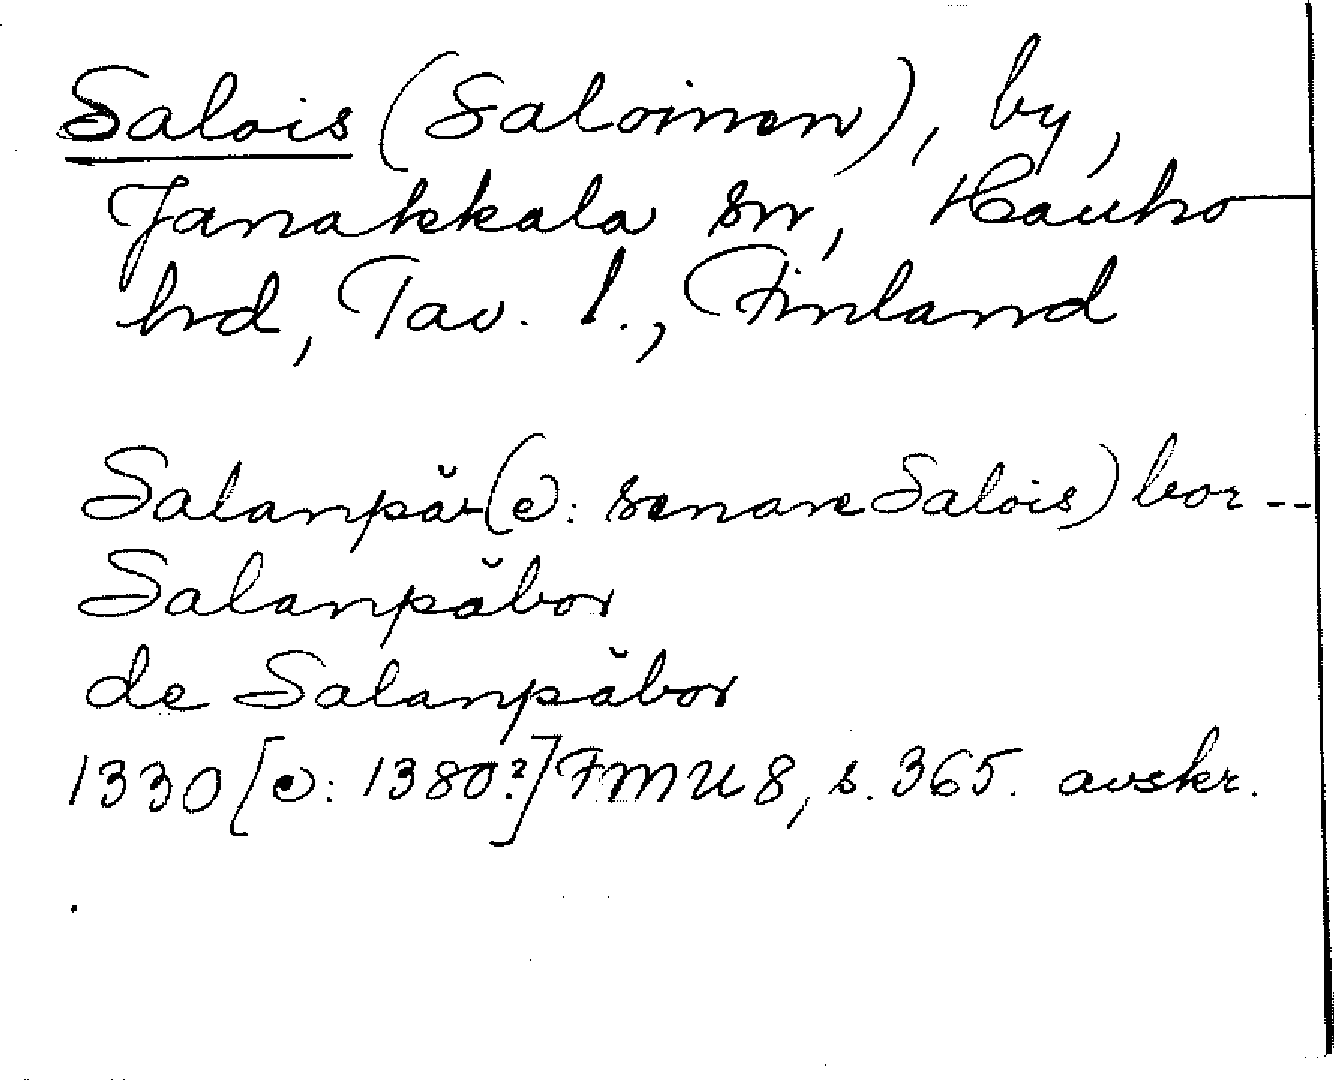 Salois (Saloinen), by,
Janakkala sn, Hauho
hd, Tav. l., Finland
Salanpăr (ɔ: senare Salois) bor --
Salanpăbor
de Salanpăbor
1330 [ɔ: 1380?] FMU 8, s. 365. avskr.